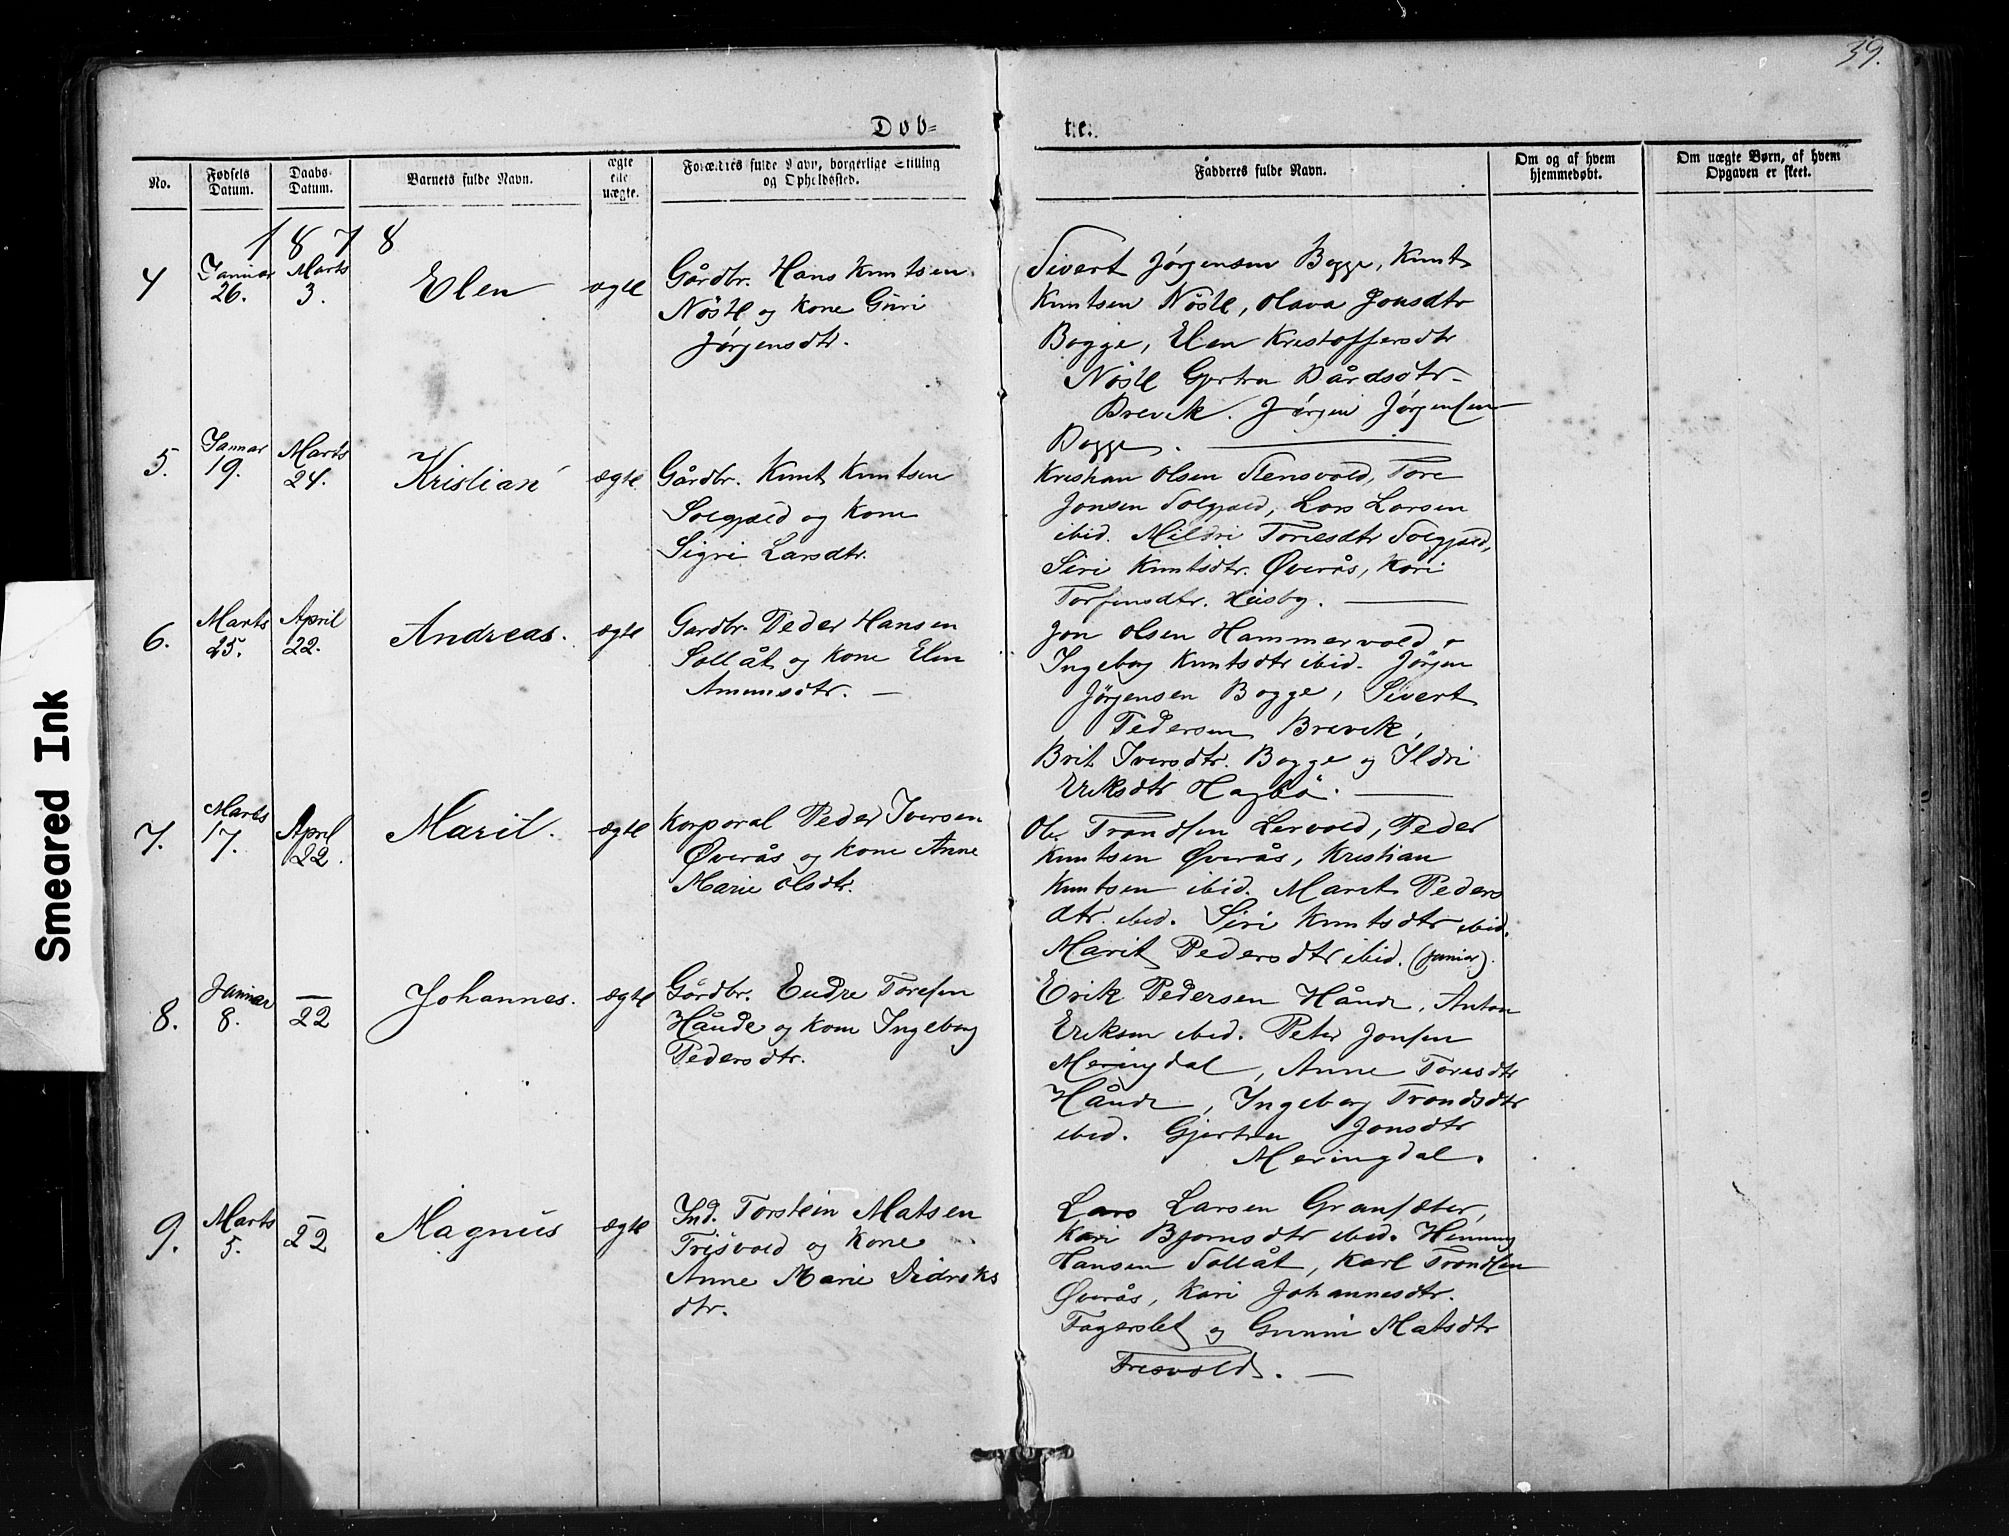 39.
Døb= te.
No.
Fødsels Datum.
Daabs- Datum.
Barnets fulde Navn.
ægte elle uægte.
Forældres fulde Navn, borgerlige Stilling og Opholdsted.
Fadderes fulde Navn.
Om og af hvem hjemmedøbt.
Om uægte Børn, af hvem Opgaven er skeet.
1878
4
Januar 26.
Marts 3.
Elen
ægte
Gårdbr. Hans Knutsen
Nöste og Kone Guri
Jørgensdtr.
Sivert Jørgensen Bogge, Knut
Knutsen Nöste, Olava Jonsdtr
Bogge, Elen Kristoffersdtr
Nöste Gjertru Bårdsdtr
Brevik. Jørgen Jørgensen
Bogge.
5.
Januar 19.
Marts 24.
Kristian
ægte
Gårdbr. Knut Knutsen
Solgjeld og Kone
Sigri Larsdtr.
Kristian Olsen Stensvold, Tore
Jonsen Solgjeld, Lars Larsen
ibid. Mildri Toresdtr Solgjeld,
Siri Knutsdtr. Øverås, Kari
Torfinsdtr. Heisby.
6.
Marts 25.
April 22.
Andreas.
ægte
Gardbr. Peder Hansen
Sollåt og Kone Elen
Amunsdtr. —
Jon Olsen Hammervold,
Ingeborg Knutsdtr ibid. Jørgen
Jørgensen Bogge, Sivert
Pedersen Brevik,
Brit Iversdtr. Bogge og Ildri
Eriksdtr Hagbø.
7.
Marts 17.
April 22.
Marit.
ægte
Korporal Peder Iversen
Øverås og Kone Anne
Marie Olsdtr.
Ole Trondsen Lervold, Peder
Knutsen Øverås, Kristian
Knutsen ibid. Marit Peders
dtr. ibid. Siri Knutsdtr ibid.
Marit Pedersdtr ibid. (junior).
8.
Januar 8.
— 22
Johannes.
ægte
Gårdbr. Endre Toresen
Hånde og Kone Ingeborg
Pedersdtr.
Erik Pedersen Hånde, Anton
Eriksen ibid. Peter Jonsen
Meringdal, Anne Toresdtr
Hånde, Ingeborg Trondsdtr
ibid. Gjertru Jonsdtr
Meringdal.
9.
Marts 5.
— 22
Magnus
ægte
Ind. Torstein Matsen
Trisvold og Kone
Anne Marie Didreks
dtr.
Lars Larsen Gransæter,
Kari Bjornsdtr ibid. Henning
Hansen Sollåt, Karl Trondsen
Øverås, Kari Johannesdtr.
Fagerslet og Gunni Matsdtr
Tresvold. —
Smeared Ink